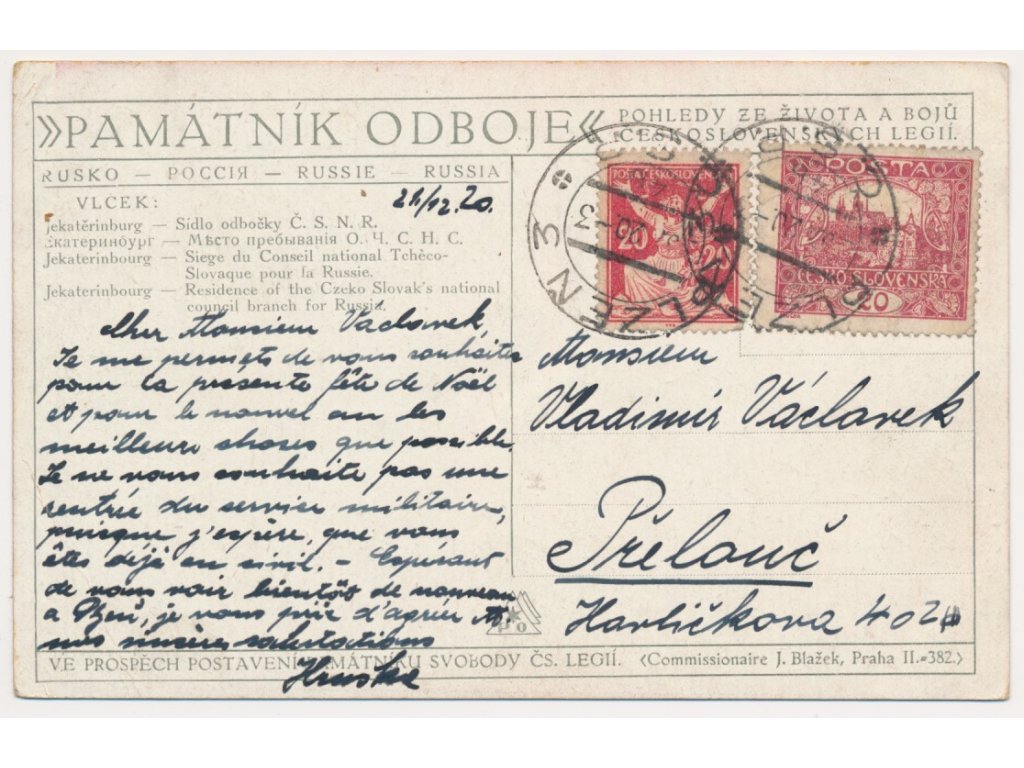 »PAMÁTNÍK ODBOJE«
POHLEDY ZE ŽIVOTA A BOJŮ
ČESKOSLOVENSKÝCH LEGIÍ.
RUSKO — РОССІЯ — RUSSIE — RUSSIA
VLCEK:
21/12.20.
Jekatěrinburg — Sídlo odbočky Č. S. N. R.
Екатеринбург — Мѣсто пребыванія О. Ч. С. Н. С.
Jekaterinbourg — Siege du Conseil national Tchéco-
Slovaque pour la Russie.
Jekaterinbourg — Residence of the Czeko Slovak's national
council branch for Russia.
Cher Monsieur Vaclavek,
Je me permets de vous souhaiter
pour la presente fête de Noël
et pour le nouvel an les
meilleure choses que possible.
Je ne vous souhaite pas une
rentrée du service militaire,
puisque j'espère, que vous
êtes déjà en civil. — Espérant
de vous voir bientôt de nouveau
a Plzeň, je vous prie d'agréer
mes sincères salutations
Hruska
POSTA ČESKOSLOVENSKÁ
20 20
POŠTA
ČESKO-SLOVENSKÁ
20
PLZEŇ 3
PLZEŇ
Monsieur
Vladimír Václavek
Přelouč
Havlíčkova 402
VE PROSPĚCH POSTAVENÍ PAMÁTNÍKU SVOBODY ČS. LEGIÍ. <Commissionaire J. Blažek, Praha II.-382.>